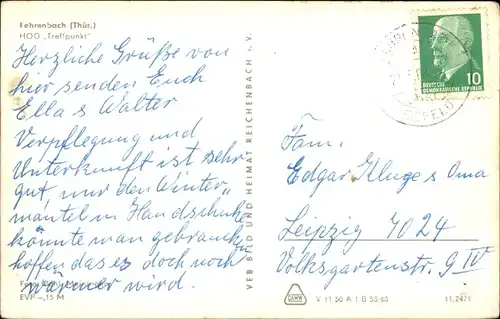 Fehrenbach (Thür.)
HOG „Treffpunkt"
Herzliche Grüße von
hier senden Euch
Ella & Walter
Verpflegung und
Unterkunft ist sehr
gut nur den Winter„
mantel u Handschuh
könnte man gebrauchen
hoffen das es doch noch
wärmer wird.
EVP –,15 M
VEB BILD UND HEIMAT REICHENBACH i. V.
10
DEUTSCHE
DEMOKRATISCHE REPUBLIK
Fam.
Edgar Kluge & Oma
Leipzig 7024
Volksgartenstr. 9 IV
V 11 50 A 1 B 5565